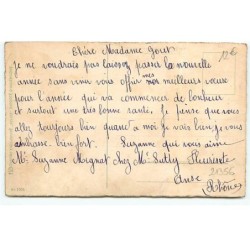 Chère Madame Goret
Je ne voudrais pas laisser passer la nouvelle
année sans venir vous offrir mes meilleurs vœux
pour l'année qui va commencer de bonheur
et surtout une très bonne santé. Je pense que vous
allez toujours bien quant a moi je vais bien je vous
embrasse bien fort. Suzanne que vous aime
Mle Suzanne Mognat chez Mr Sully Fleuriste
Anse
(Rhône)